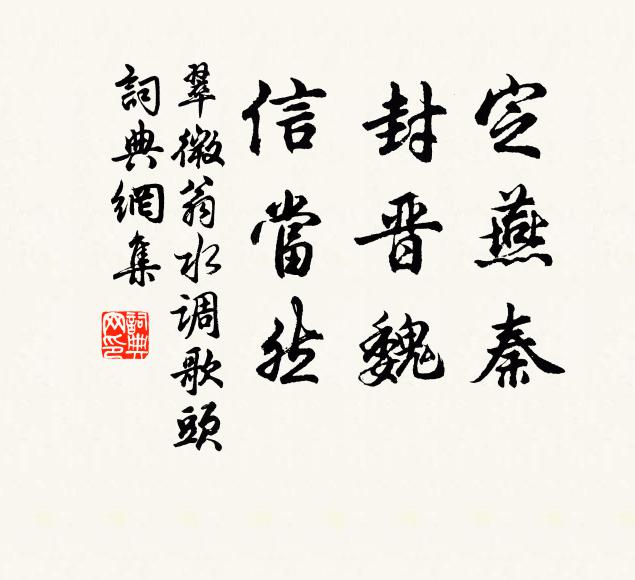 定燕秦
封晋魏
信當然
翠微翁水调歌頭
詞典網集
詞典
网印